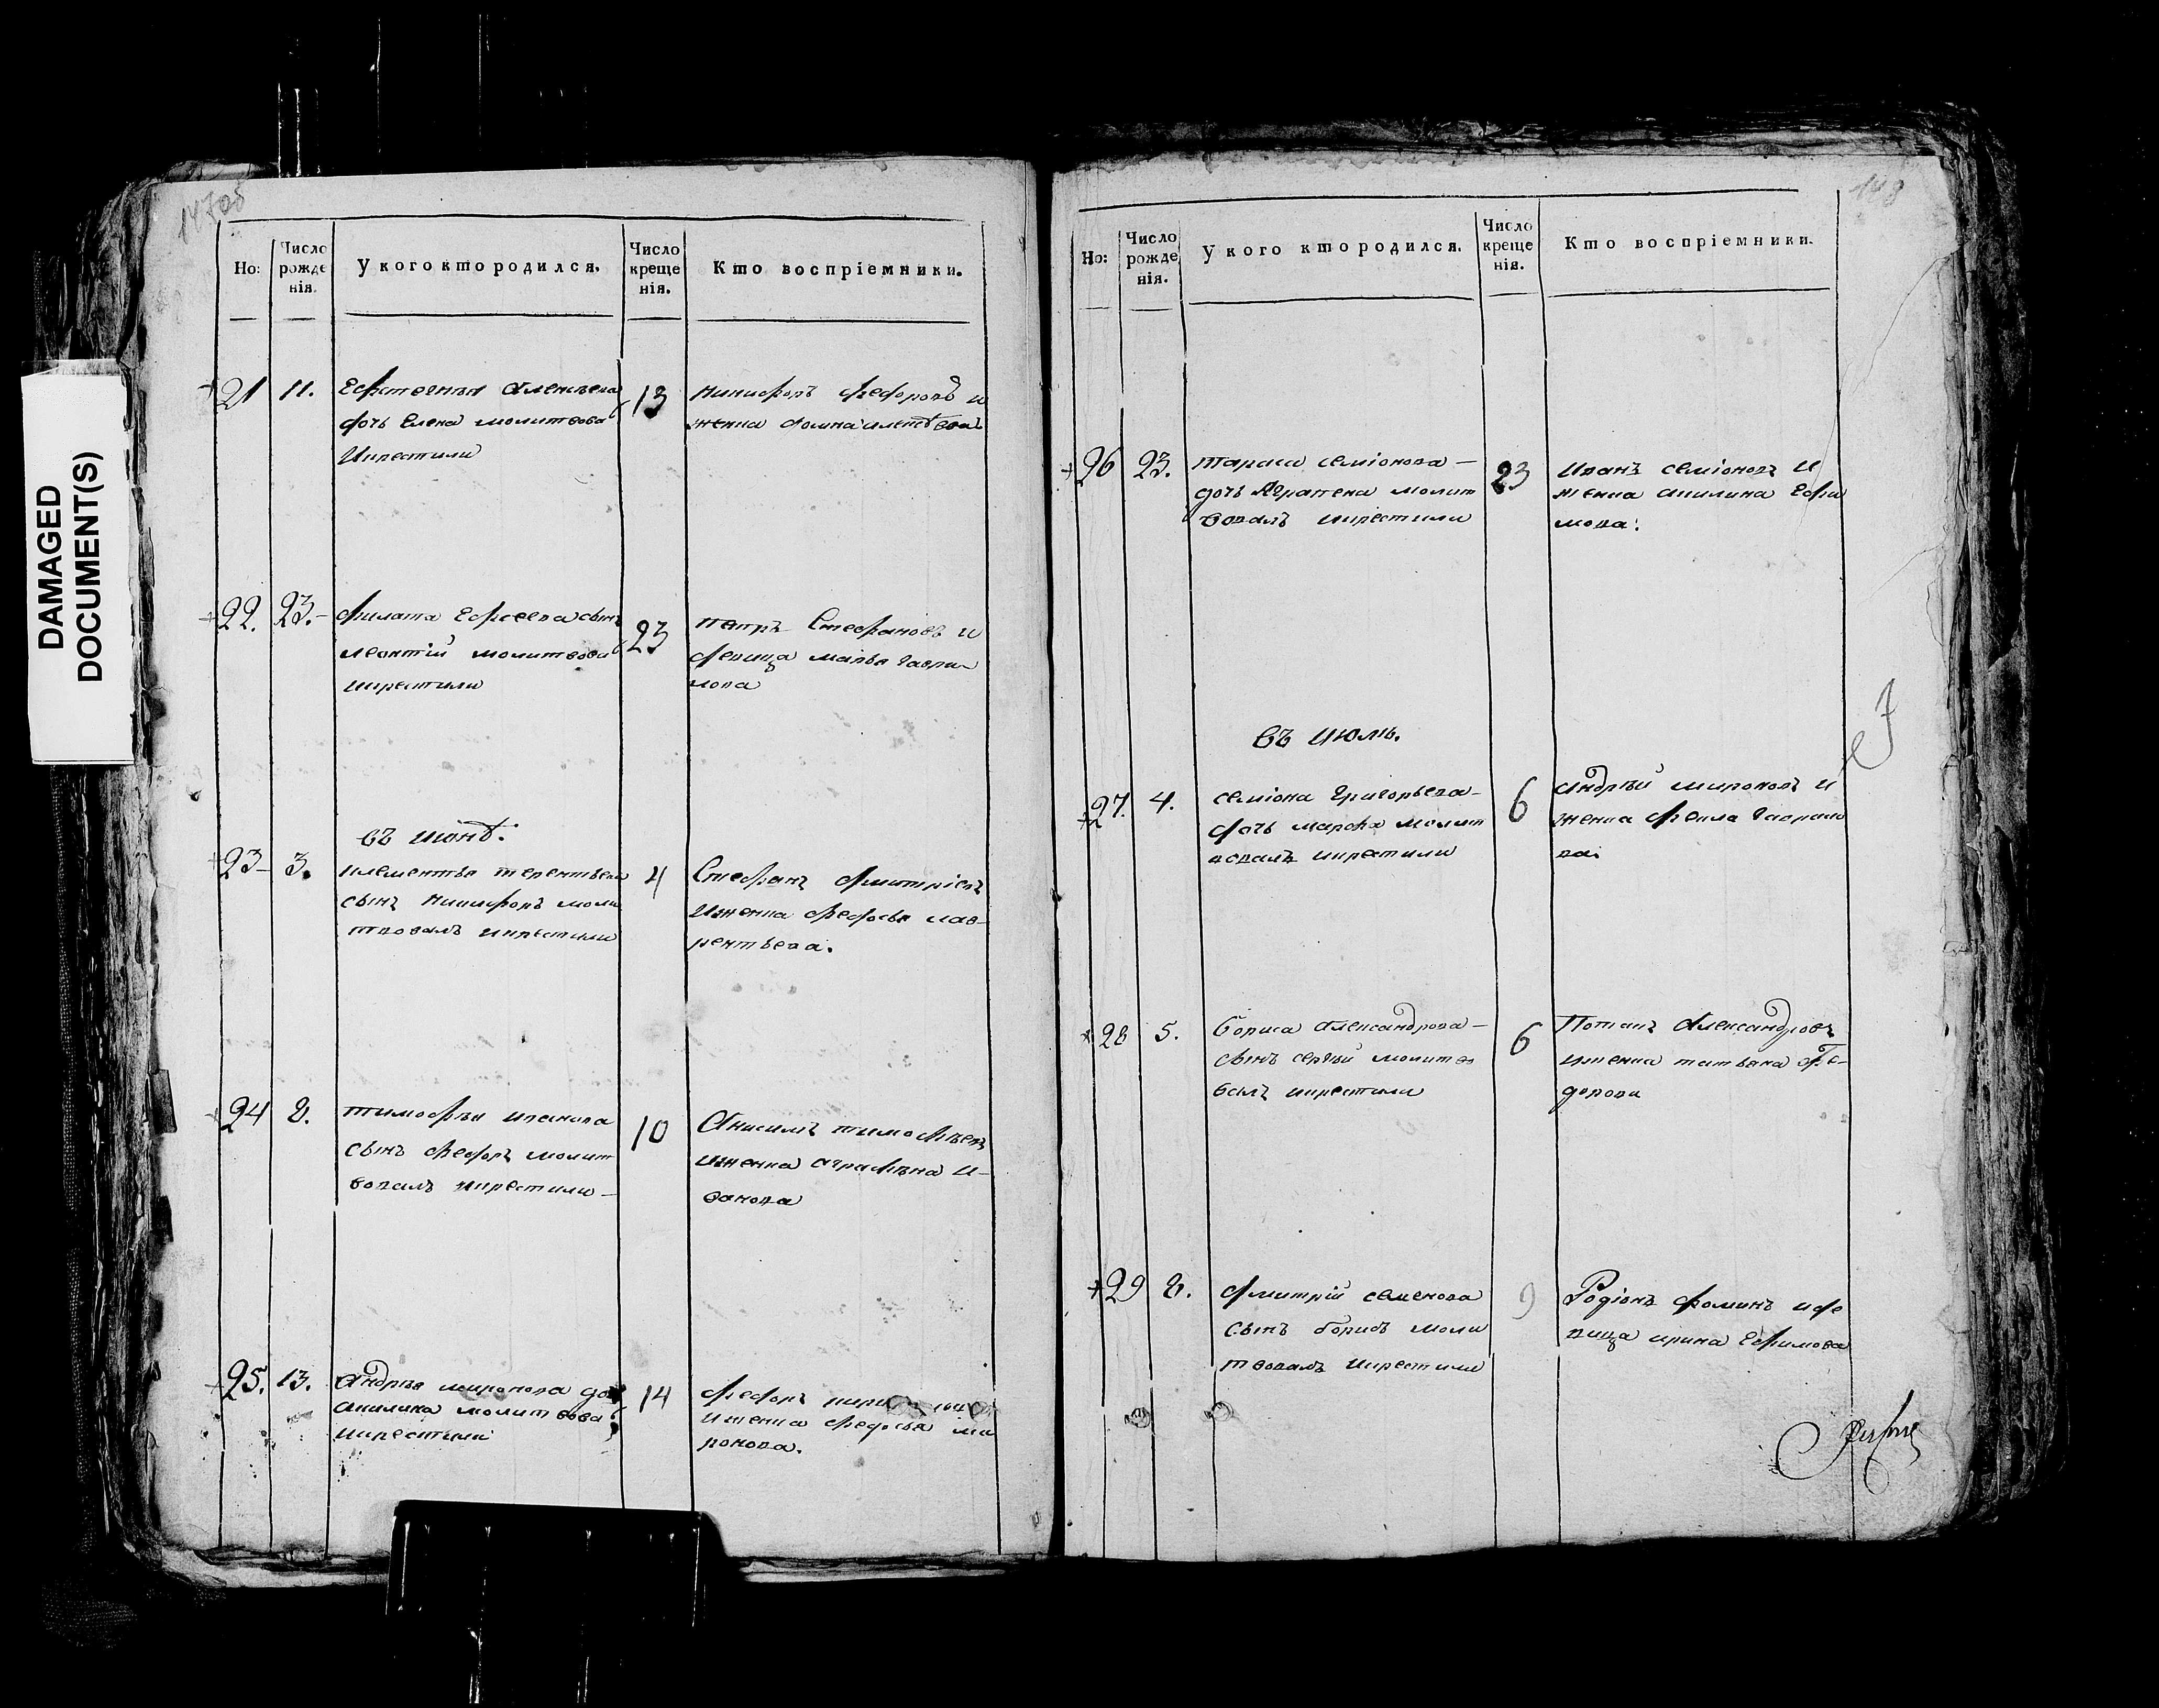 DAMAGED
DOCUMENT(S)
147об
Но:
Число рожденія.
У кого кто родился.
Число крещенія.
Кто воспріемники.
21
11.
Ефстегнѣя Алексѣева
дочь Елена молитвова
Икрестили
13
никифоръ федоровъ и
женка домна
22.
23.-
филата Ефсеева сынъ
леонтій молитвова
икрестили
23
петръ Стефановъ и
девица марья гаври-
лова
въ июнѣ.
23
3.
клементья терентьева
сынъ никифоръ моли
твовалъ икрестили
4
Стефанъ дмитріевъ
Иженка федосья лав-
рентьева.
24
8.
тимофѣя иванова
сынъ федоръ молит
вовалъ икрестили -
10
Анисимъ тимофѣевъ
иженка аграфѣна и-
ванова
25.
13.
андрѣя миронова доч
акилина молитвова
икрестили
14
федоръ
иженка федосья ми
ронова.
148
Но:
Число рожденія.
У кого кто родился.
Число крещенія.
Кто воспріемники.
26
23.
тараса семіонова -
дочь Аграпена молит
вовалъ икрестили
23
иванъ семіоновъ и
женка акилина Ефи
мова.
въ июль.
27.
4.
семіона григорьева-
дочь марфа молит
вовалъ икрестили
6
андрѣй мироновъ и
женка фекла гаврило
ва.
28
5.
бориса александрова -
сынъ сергѣй молитво
валъ икрестили
6
Потапъ Александровъ
иженка татьяна Фе-
дорова
29
8.
дмитрій семенова
сынъ борисъ моли
твовалъ икрестили
9
Родіонъ фоминъ иде
вица ирина Ефимова